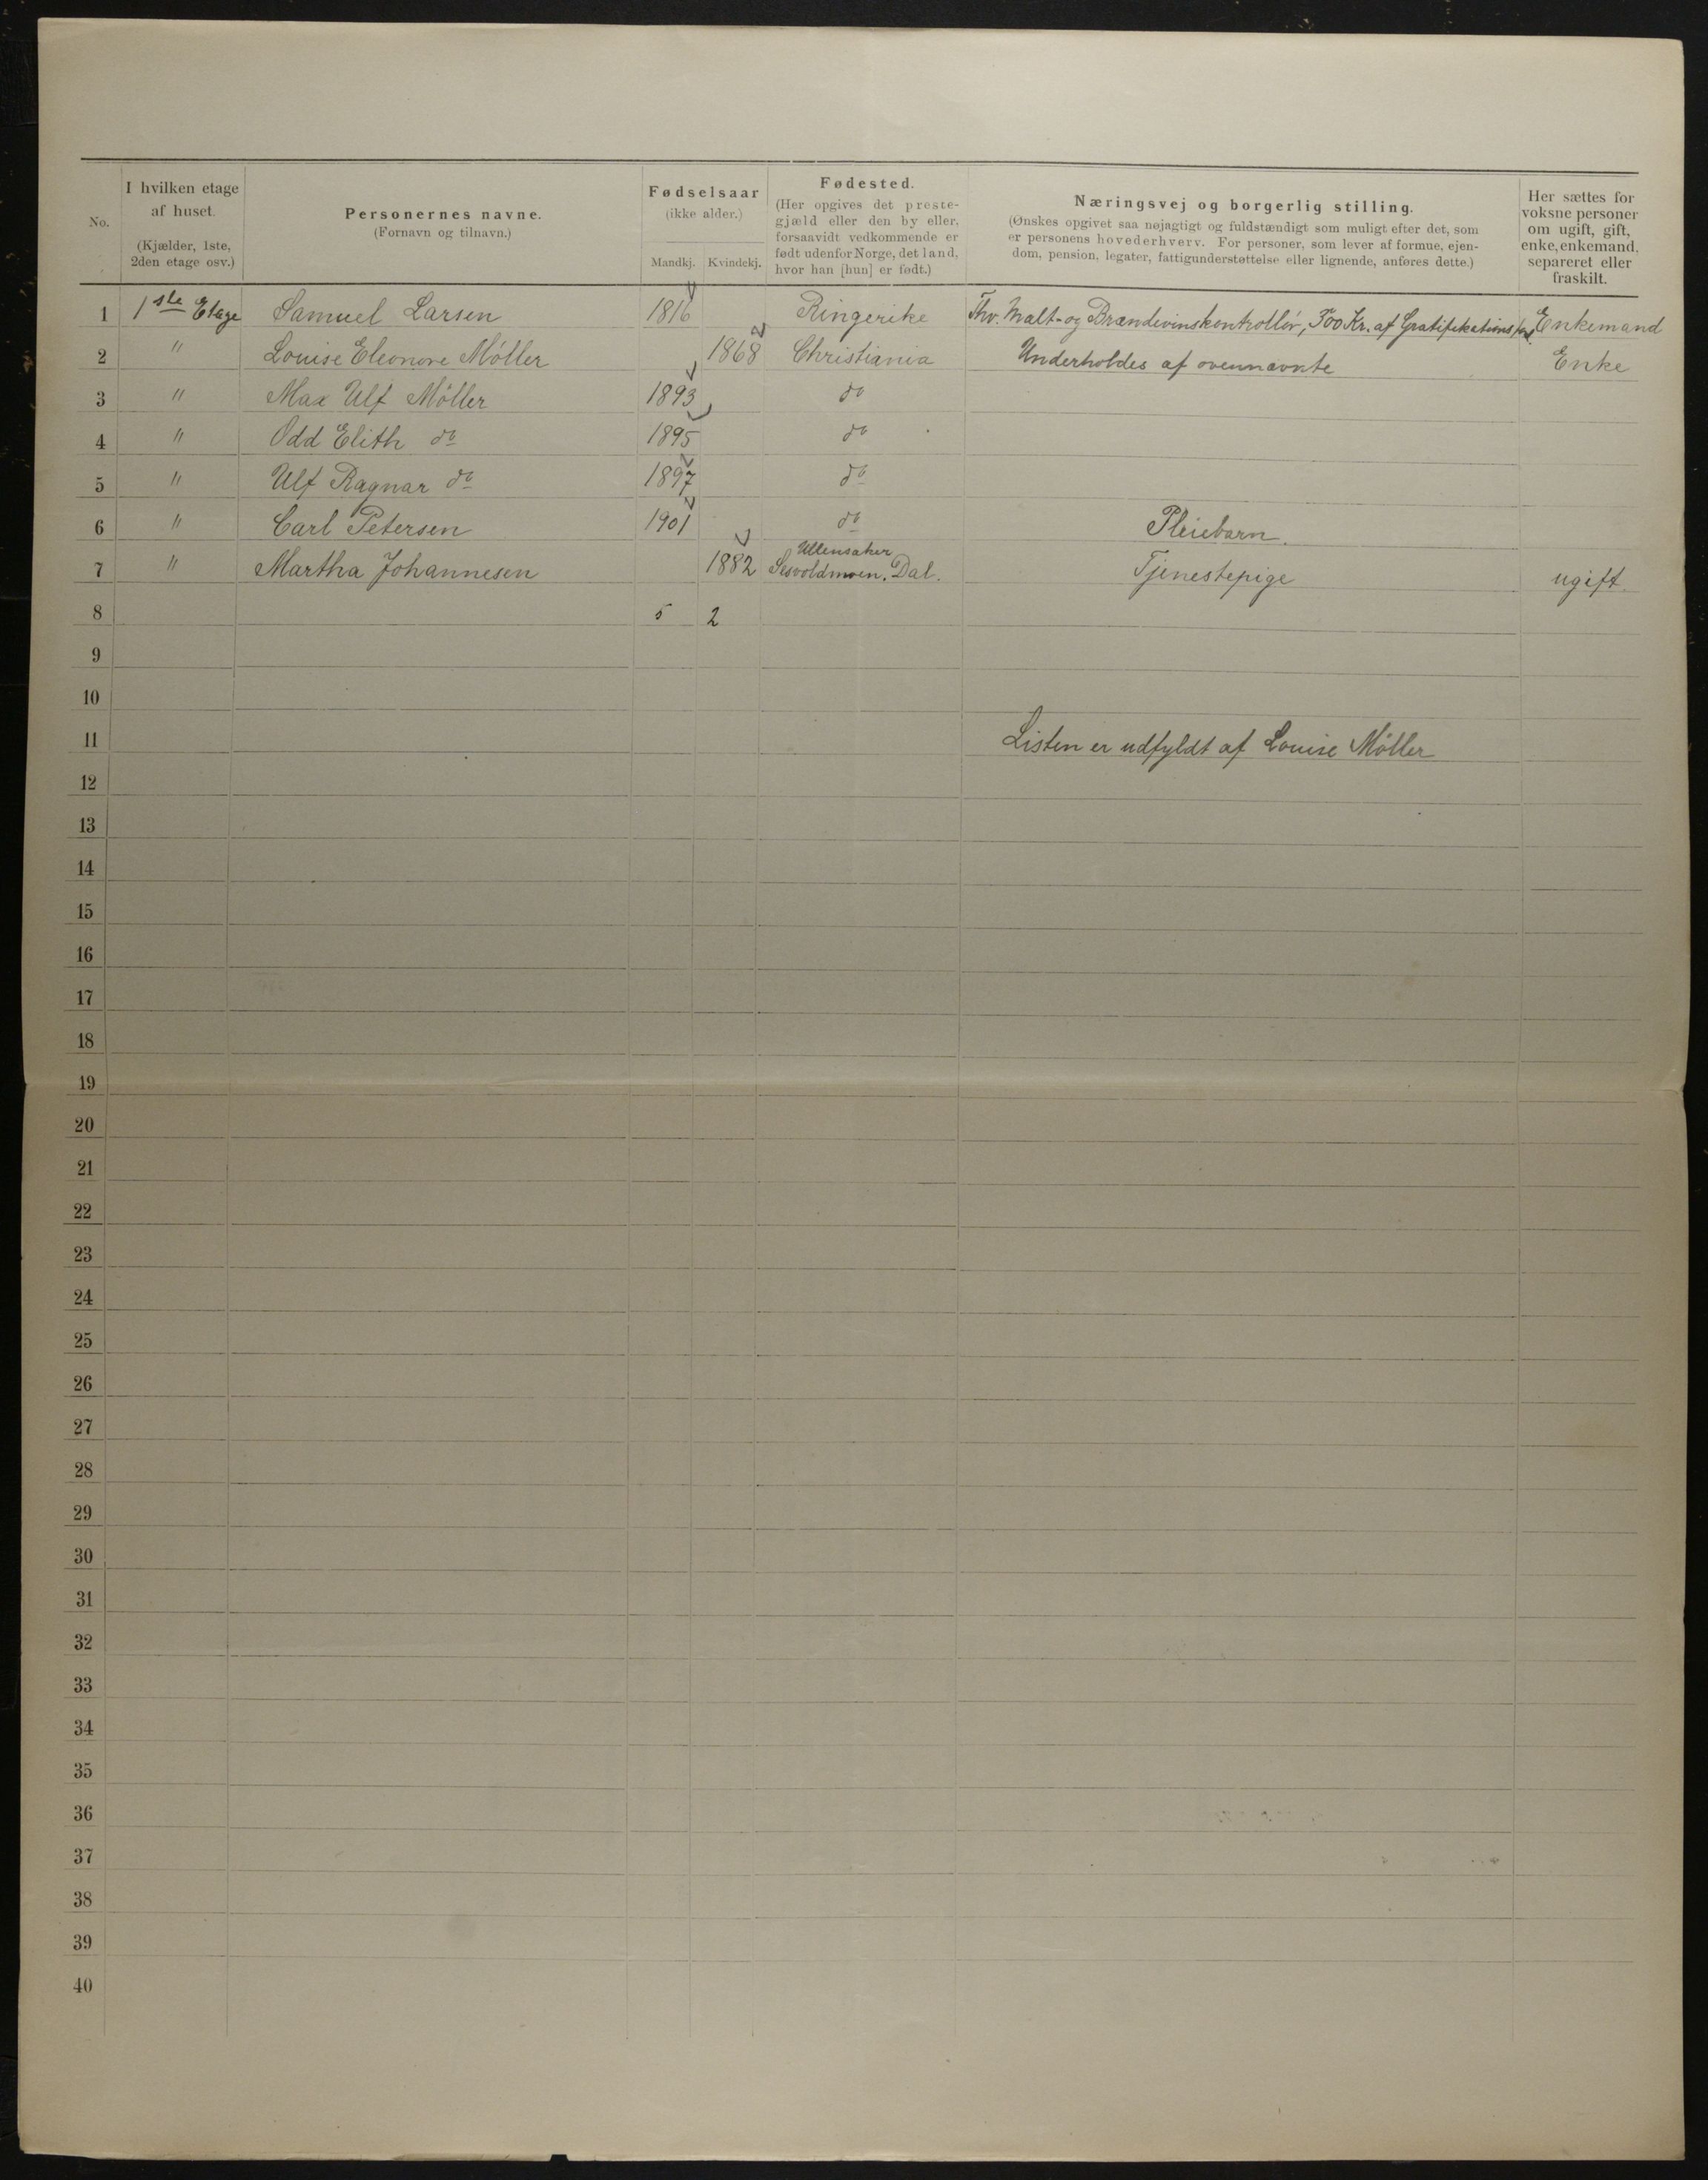 No.
I hvilken etage
af huset.
(Kjælder, 1ste,
2den etage osv.)
Personernes navne.
(Fornavn og tilnavn.)
Fødselsaar
(ikke alder.)
Mandkj. Kvindekj.
Fødested.
(Her opgives det preste-
gjæld eller den by eller,
forsaavidt vedkommende er
født udenfor Norge, det land,
hvor han [hun] er født.)
Næringsvej og borgerlig stilling.
(Ønskes opgivet saa nøjagtigt og fuldstændigt som muligt efter det, som
er personens hovederhverv. For personer, som lever af formue, ejen-
dom, pension, legater, fattigunderstøttelse eller lignende, anføres dette.)
Her sættes for
voksne personer
om ugift, gift,
enke, enkemand,
separeret eller
fraskilt.
1 1ste Etage Samuel Larsen 1816 Ringerike Malt- og Brændevinskontrollør, Kr. af Enkemand
2 " Louise Eleonore Møller 1868 Christiania Underholdes af ovennævnte Enke
3 " Max Ulf Møller 1893 do
4 " Odd Elith do 1895 do
5 " Ulf Ragnar do 1897 do
6 " Carl Petersen 1901 do Pleiebarn.
Ullensaker
7 " Martha Johannesen 1882 Sesvoldmoen. Dal. Tjenestepige ugift.
8 5 2
9
10
11 Listen er udfyldt af Louise Møller
12
13
14
15
16
17
18
19
20
21
22
23
24
25
26
27
28
29
30
31
32
33
34
35
36
37
38
39
40